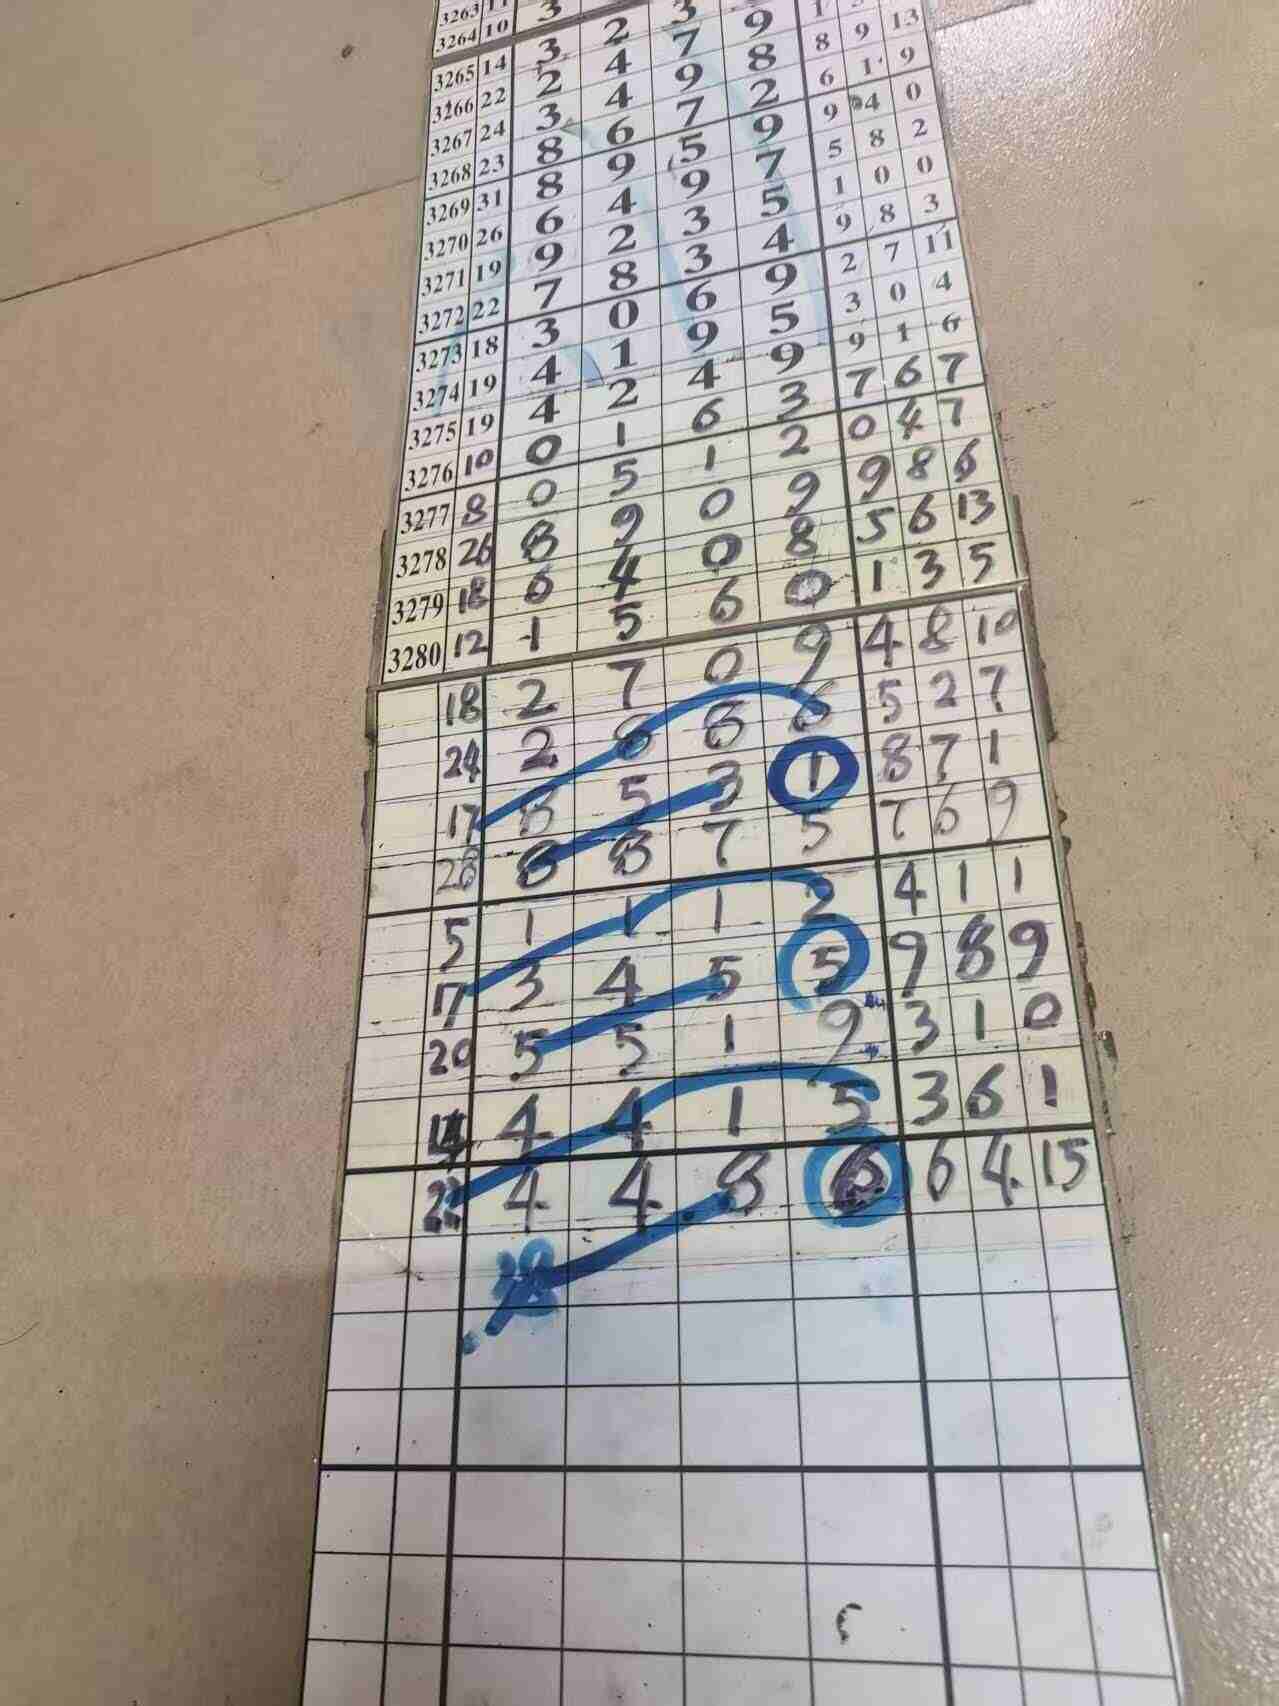 3263 11
3264 10 3
3265 14 3 2 3
3266 22 2 4 7 9 1
3267 24 3 4 9 8 8 9 13
3268 23 8 6 7 2 6 1 9
3269 31 8 9 5 9 9 4 0
3270 26 6 4 9 7 5 8 2
3271 19 9 2 3 5 1 0 0
3272 22 7 8 3 4 9 8 3
3273 18 3 0 6 9 2 7 11
3274 19 4 1 9 5 3 0 4
3275 19 4 2 4 9 9 1 6
3276 10 0 1 6 3 7 6 7
3277 8 0 5 1 2 0 4 7
3278 26 8 9 0 9 9 8 6
3279 18 6 4 0 8 5 6 13
3280 12 1 5 6 0 1 3 5
18 2 7 0 9 4 8 10
24 2 8 8 6 5 2 7
17 8 5 3 1 8 7 1
28 8 8 7 5 7 6 9
5 1 1 1 2 4 1 1
17 3 4 5 5 9 8 9
20 5 5 1 9 3 1 0
14 4 4 1 5 3 6 1
22 4 4 8 6 6 4 15